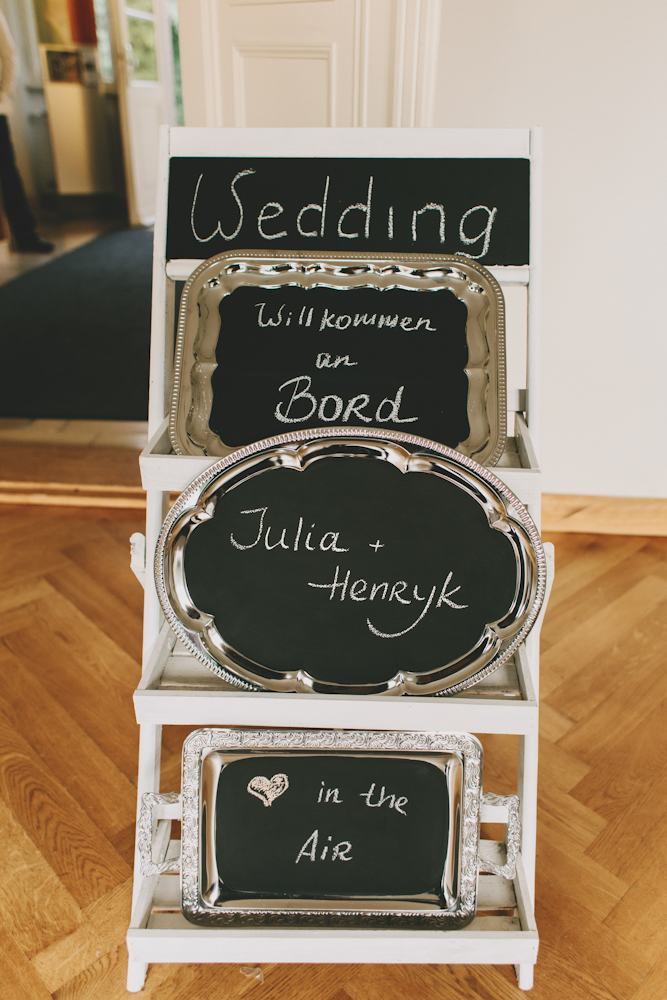 Wedding
Willkommen
an
Bord
Julia +
Henryk
in the
Air